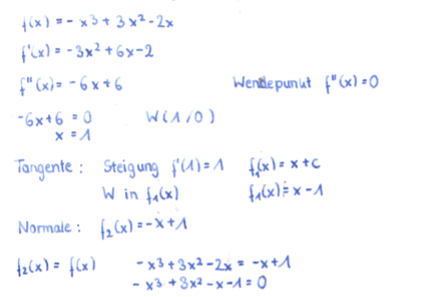 f(x) = - x³ + 3x² - 2x
f'(x) = -3x² + 6x - 2
f''(x) = -6x + 6 Wendepunkt f''(x) = 0
-6x + 6 = 0 W(1/0)
x = 1
Tangente : Steigung f'(1) = 1 f₁(x) = x + c
W in f₁(x) f₁(x) = x - 1
Normale : f₂(x) = -x + 1
f₂(x) = f(x) - x³ + 3x² - 2x = -x + 1
- x³ + 3x² - x - 1 = 0